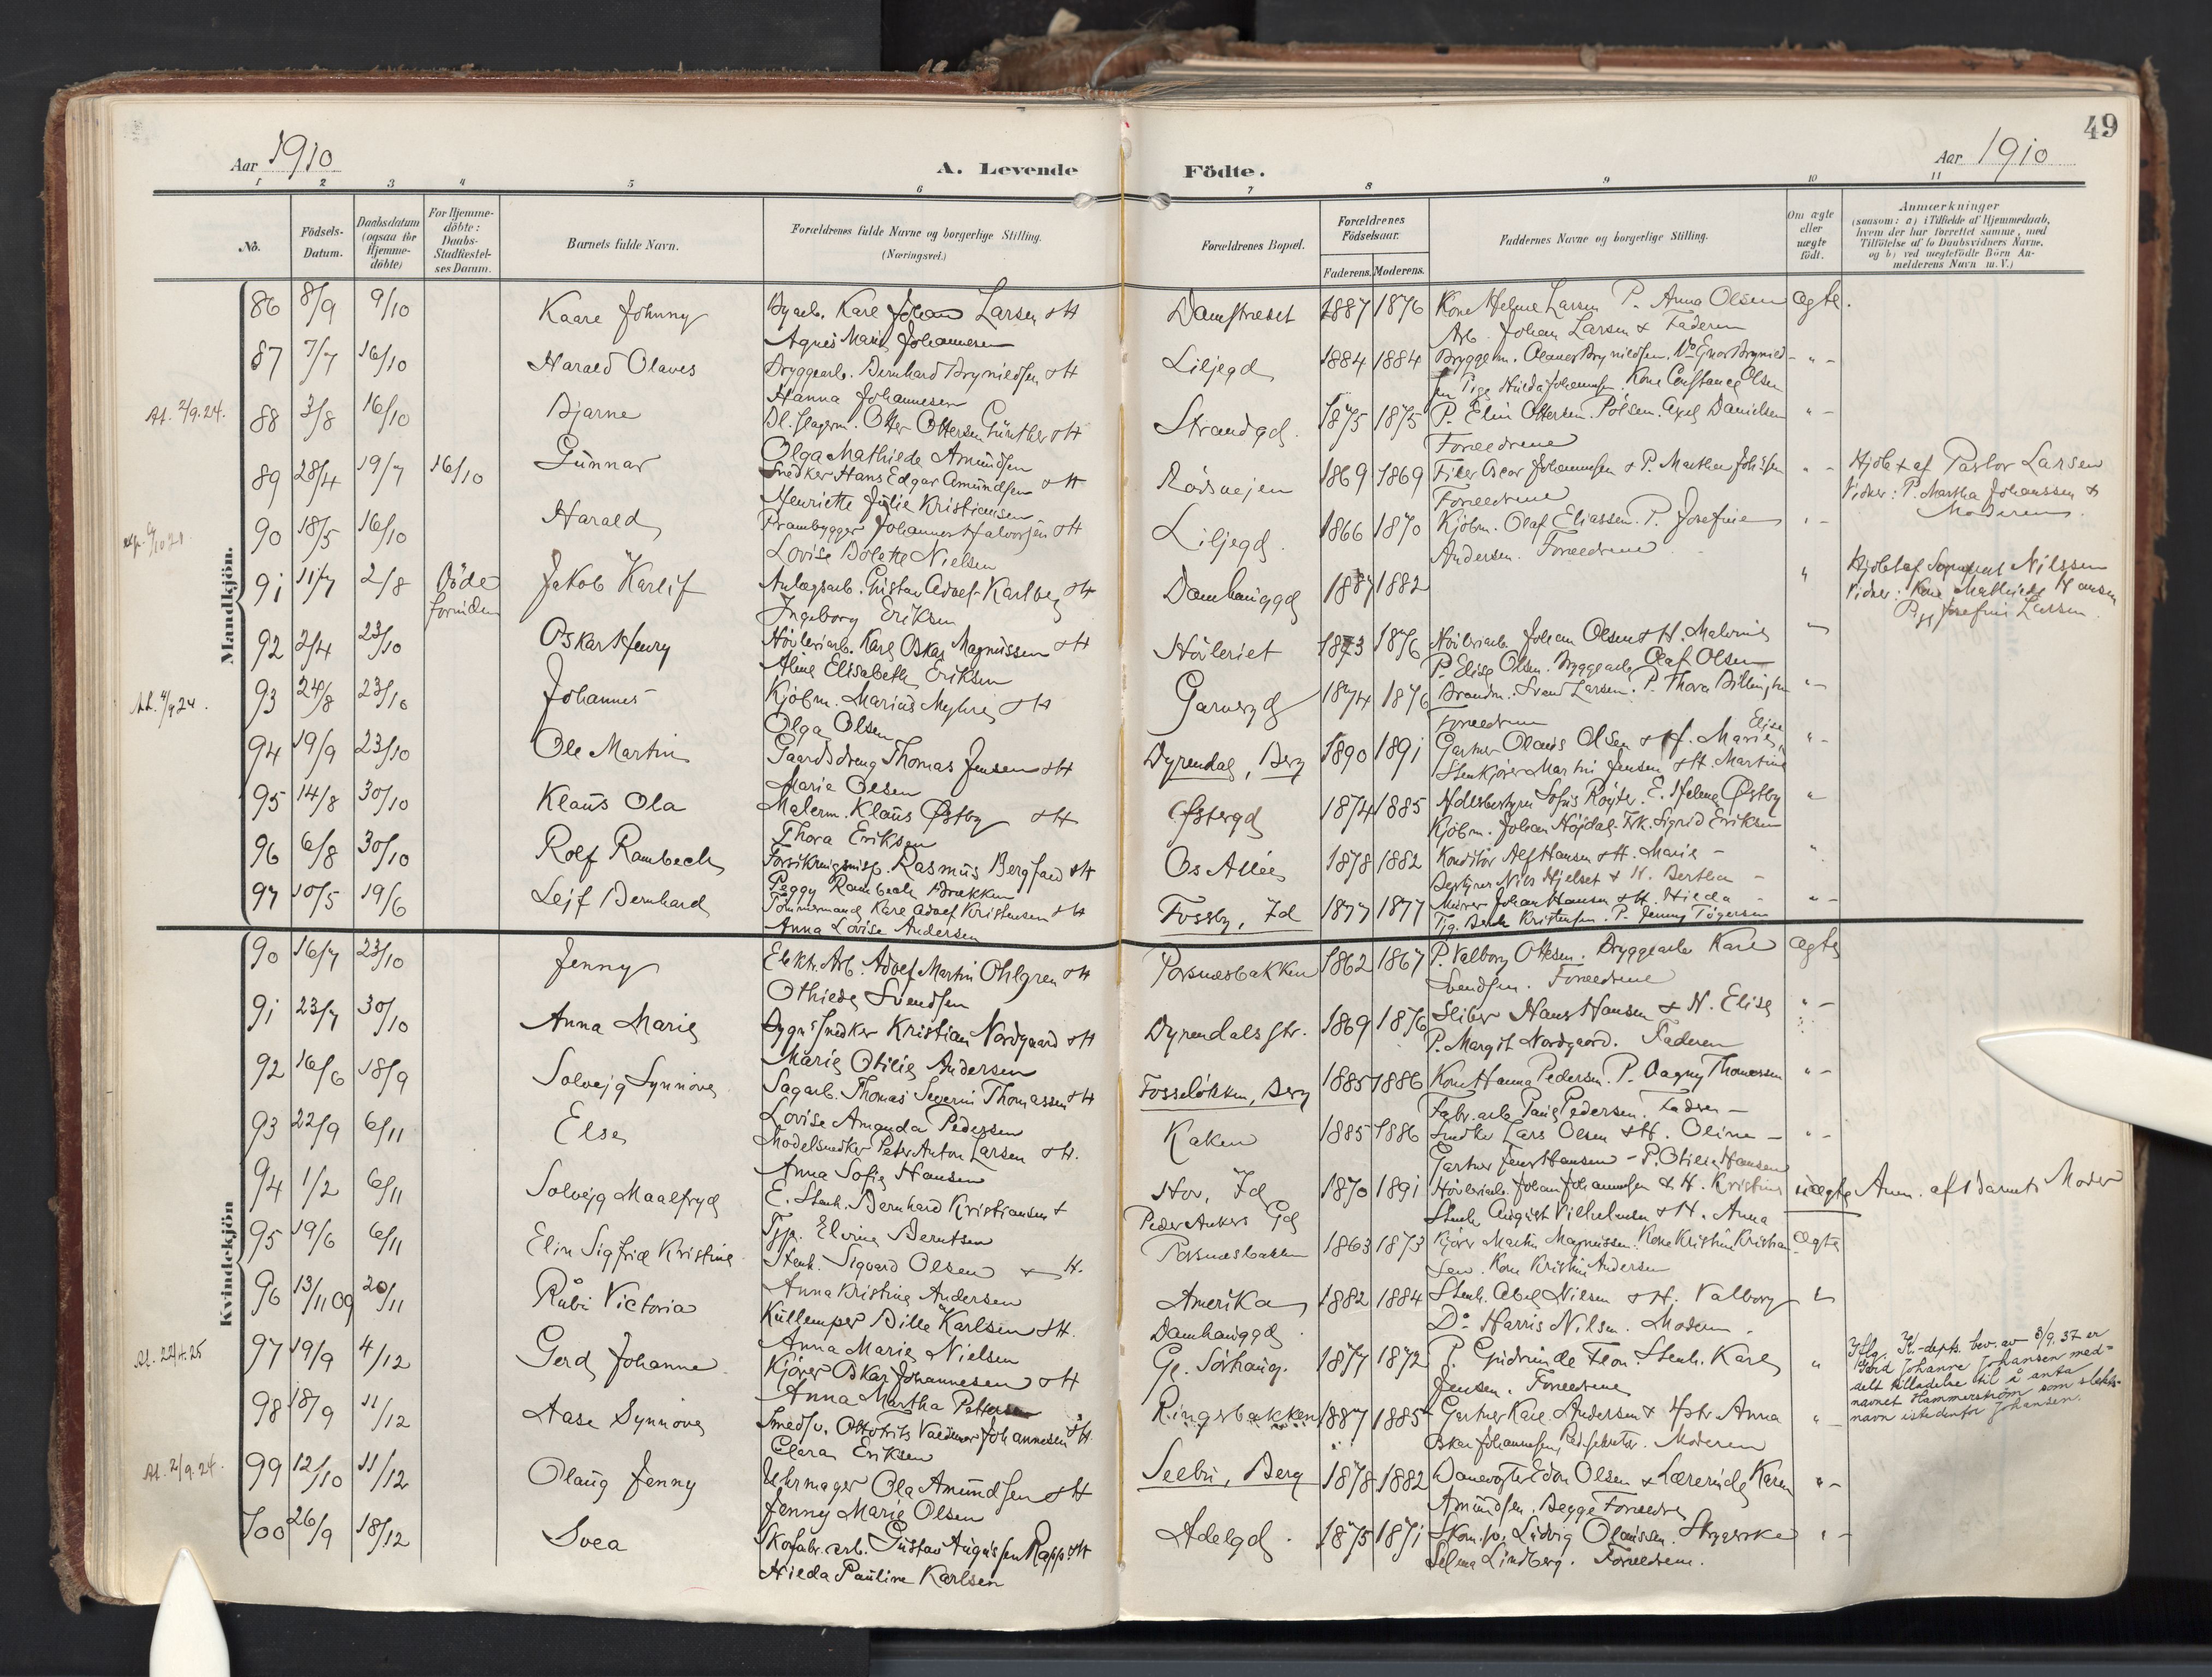 49
Aar 1910
A. Levende
Födte.
Aar 1910
1 2 3 4 5 6 7 8 9 10 11
No. Födsels-Datum. Daabsdatum (ogsaa for Hjemme-döbte) For Hjemme-döbte: Daabs-Stadfæstel-ses Datum. Barnets fulde Navn. Forældrenes fulde Navne og borgerlige Stilling. (Næringsvei.) Forældrenes Bopæl. Forældrenes Födselsaar. Faderens. Moderens. Faddernes Navne og borgerlige Stilling. Om ægte eller uægte födt. Anmærkninger (saasom: a) i Tilfælde af Hjemmedaab, hvem der har forrettet samme, med Tilföielse af to Daabsvidners Navne, og b) ved uægtefödte Börn An-melderens Navn m. V.)
Mandkjön.
86 8/9 9/10 Kaare Johnny Byarb. Karl Johan Larsen & H Damstrædet 1887 1876 Kone Helene Larsen P. Anna Olsen ægte.
Agnes Marie Johannesen Arb. Johan Larsen & Faderen
87 7/7 16/10 Harald Olaves Bryggearb. Bernhard Brynildsen & H Liljegd 1884 1884 Bryggem. Olaves Brynildsen. " -
Hanna Johannesen Pige Hulda Johannesen. Kone Constance Olsen
At. 2/9.24.
88 3/8 16/10 Bjarne Bl. slagerm. Otter Ottersen Günther & H Strandgd. 1875 1875 P. Elin Ottersen. Pölsem. Axel Danielsen " -
Olga Mathilde Amundsen Forældrene
89 28/4 19/7 16/10 Gunnar Snedker Hans Edgar Amundsen & H Rödsvejen 1869 1869 Filer Oscar Johannesen & P. Martha Johssen " - Hjdöbt af Pastor Larsen
Henriette Julie Kristiansen Forældrene Vidner: P. Martha Johanssen & Moderen.
90 18/5 16/10 Harald Prambygger Johannes Halvorsen & H Liljegd. 1866 1870 Kjöbm. Olaf Eliassen. P. Josefine " -
Lovise Bolette Nielsen Andersen. Forældrene
91 11/7 2/8 Döde forinden Jakob Karlif Anlægsarb. Gustav Adolf Karlberg & H Damhauggd 1887 1882 " Hjdöbt af Nilssen
Ingeborg Eriksen Vidner: Kone Mathilde Hansen
Josefine Larsen.
92 2/4 23/10 Oskar Henry Hövleriarb. Karl Oskar Magnussen & H Hövleriet 1873 1876 Hövleriarb. Johan Olsen & H. Malvine "
Aline Elisabeth Eriksen P. Elise Olsen. Bryggearb. Olaf Olsen
At. 4/9 24.
93 24/8 23/10 Johannes Kjöbm. Marius Myhre & H Garverg 1874 1876 Brandm. Svend Larsen. P. Thora Billington " -
Olga Olsen Forældrene
94 19/9 23/10 Ole Martin Gaardsdreng Thomas Jensen & H Dyrendal, Berg 1890 1891 Gartner Olaus Olsen & H. Marie Elise " -
Maria Olsen Stenkjörer Martin Jensen & H. Martine
95 14/8 30/10 Klaus Ola Malerm. Klaus Østby & H Østergd 1874 1885 Sofus Röyter. E. Helene Østby "
Thora Eriksen Kjöbm. Johan Höjdal. Frk. Sigrid Eriksen
96 6/8 30/10 Rolf Rambech Forsikringsinsp. Rasmus Bergfald & H Os Allée 1878 1882 Konditor Alf Hansen & H. Marie - "
Peggy Rambech Brekken Bestyrer Nils Hjelset & H. Bertha -
97 10/5 19/6 Lejf Bernhard Tömmermand Karl Adolf Kristensen & H Fossby, Id 1877 1877 Murer Johan Hansen & H. Hilda - " -
Anna Lovise Andersen Tjg. Kristensen. P. Jenny Tögersen
Kvindekjön
90 16/7 23/10 Jenny Elektr. Arb. Adolf Martin Ohlgren & H Porsnæsbakken 1862 1867 P. Valborg Ottesen. Bryggearb. Karl ægte
Othilde Svendsen Svendsen. Forældrene
91 23/7 30/10 Anna Marie Bygnssnedker Kristian Nordgaard & H Dyrendals str. 1869 1876 Sliber Hans Hansen & H. Elise " -
Marie Otilie Andersen P. Margit Nordgaard. Faderen
92 16/6 18/9 Solvejg Synnöve Sagarb. Thomas Severin Thomassen & H Fosselökken, Berg 1885 1886 Kone Hanna Pedersen. P. Dagny Thomassen " -
Lovise Amanda Pedersen Fabr. arb. Paul Pedersen. Faderen -
93 22/9 6/11 Else Modelsnedker Peter Anton Larsen & H. Kaken 1885 1886 Snedker Lars Olsen & H. Oline - " -
Anna Sofie Hansen Gartner Jens Hansen - P. Otilie Hansen
94 1/2 6/11 Solvejg Maalfryd E. Stenh. Bernhard Kristiansen & Hov, Id 1870 1891 Hövleriarb. Johan Johannesen & H. Kristine uægte Anm. af Barnets Moder
Tjp. Elvine Berntsen Peder Ankers Gd Stenh. August Vilhelmsen & H. Anna
95 19/6 6/11 Elin Sigfrid Kristine Stenh. Sigvard Olsen & H. Porsnæsbakken 1863 1873 Kjörer Martin Magnussen. Kone Kristine Kristian- ægte
Anna Kristine Andersen sen. Kone Kristine Andersen
96 13/11 09 20/11 Rubi Victoria Kullemper Bille Karlsen & H. Amerika 1882 1884 Stenh. Abel Nilsen & H. Valborg "
Anna Marie Nielsen Damhauggd. Do Harris Nilsen. Moderen.
At. 22/4.25
97 19/9 4/12 Gerd Johanne Kjörer Oskar Johannesen & H Gl. Sörhaug. 1877 1872 P. Stenh. Karl " Iflg. J.-depts. bev. av 3/9. 37 er
Anna Martha Pettersen Jensen. Forældrene Gerd Johanne Johansen med-
delt tilladelse til å anta
navnet Hammerström som slekts-
navn istedenfor Johansen.
98 18/9 11/12 Aase Synnöve Smedsv. Otto Frits Valdemar Johannesen & H. Ringsbakken 1887 1885 Gartner Karl Andersen & Hstr Anna " -
Clara Eriksen Oskar Johannesen, Moderen
At. 2/9.24.
99 12/10 11/12 Olaug Jenny Uhrmager Ola Amundsen & H Seebu, Berg 1878 1882 Banevogter Edv. Olsen & Lærerinde Karen " -
Jenny Marie Olsen Amundsen. Begge Forældre
100 26/9 18/12 Svea Skofabr. arb. Gustav Augussen Rapp & H Adelgd. 1875 1871 Skom. sv. Ludvig Olaussen. Strygerske " -
Hilda Pauline Karlsen Selma Lindberg. Forældrene.